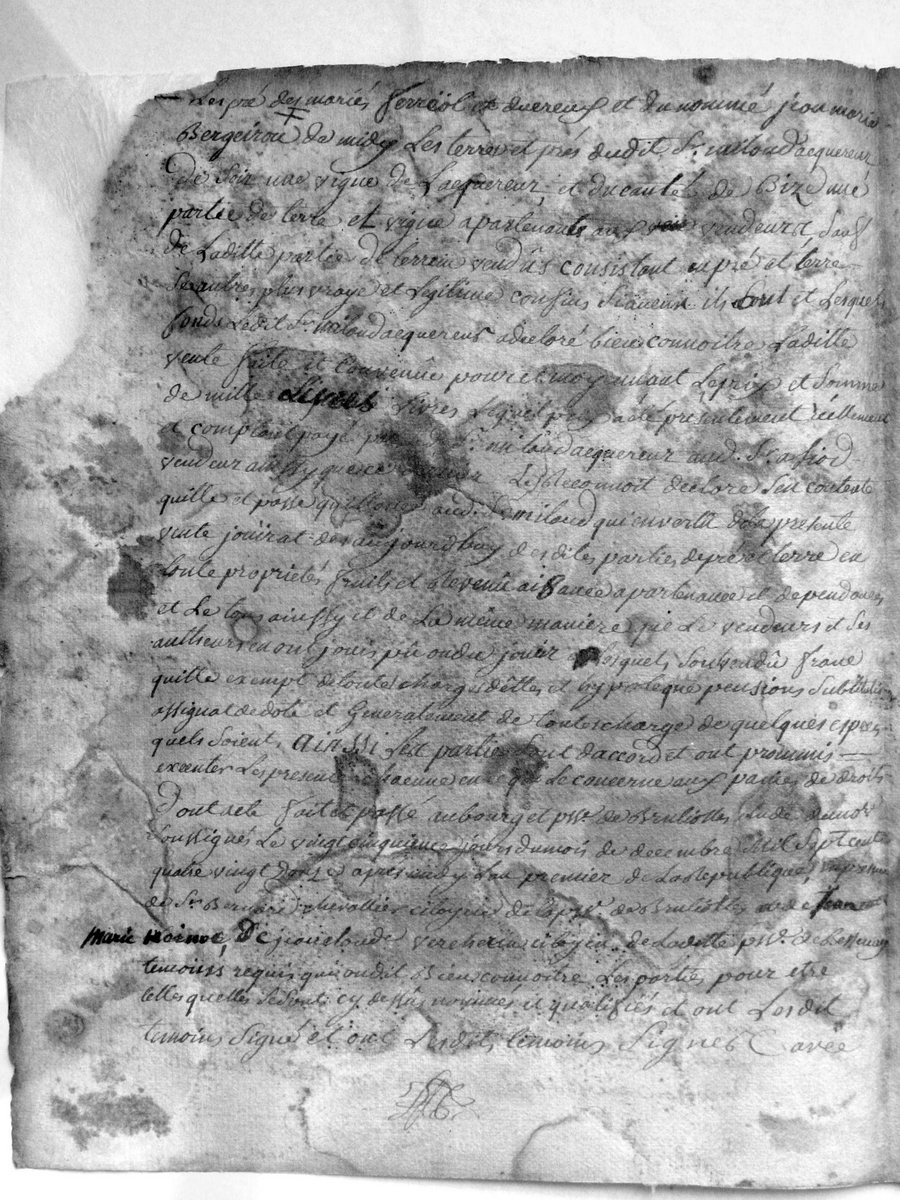 Les pré des mariés ferréol et ducreux et du nommé jean marie
Bergeiron de midy Les terres et prés dudit Sr. miloud acquereur
De soir une vigne de Lacquereur, et du cauté de Bize une
partie de terre et vigne apartenants aux vendeurs Sauf
de Laditte partie de terrein vendûs consistant en pré et terre
Ses autres plus vraye et Legitime confins Si aucuns ils Sont et Lesquels
fonds Ledit Sr. miloud acquereur a declaré bien connoitre Laditte
vente faite et convenûe pour et moyennant Le prix et Somme
de mille Livres Lequel prix a été presentement réellement
et comptant payé par miloud acquereur aud. Sr.
vendeur ainssy que ce Le Reconnoit declare S'en contente
quitte et passe quittance aud. Sr. miloud qui en vertu de la presente
vente jouirat des aujourdhuy desdites parties de pré et terre en
toute propriétés fruits et Revenu aisance apartenance et dependances
et Le tous ainssy et de La même maniere que Le vendeurs et Ses
autheurs en ont jouis pû ou dû jouir Lesquels Sont vendû franc
quitte exempt de toute charges dettes et hypoteque pensions Substitution
assignat de dote et Generalement de toutes charge de quelques especes
quels Soient, ainssi Les parties Sont daccord et ont prommis —
executer Les presentes chacune en ce qui Le concerne aux peines de droits
Dont acte fait et passé au bourg et psse. de Brulliolles Etude de nor.
Soussignés Le vingt cinquieme jours du mois de decembre Mil Sept cents
quatre vingt Douze apres midy L'an premier de La Republique, en presence
de Sr. Bernard chevallier citoyen de La psse. de Brulliolles et de Jean
Marie De jean claude vercherin citoyen de Laditte psse. de Bessenay
temoinss requis qui ont dit Bien connoitre Les parties pour etre
telles quelles Se Sont cy dessûs nommés et qualifiés et ont Lesdit
temoins Signé et ont Lesdits temoins Signés avec